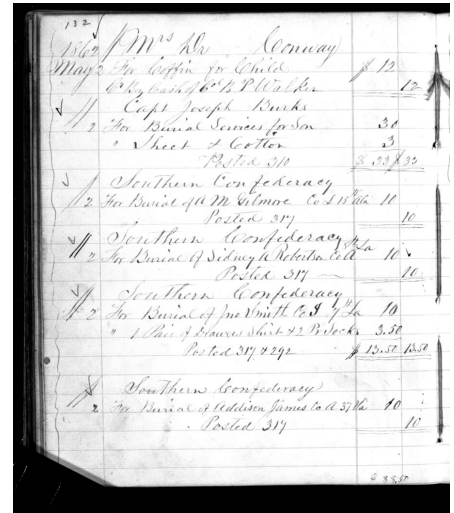 132
1862 Mrs Dr Conway
May 2 For Coffin for Child $ 12
Cr By Cash of B. P. Walker 12
Capt Joseph Burks
2 For Burial Services for Son 30
" Sheet & Cotton 3
Posted 310 $ 33 $ 33
Southern Confederacy
2 For Burial of A M Gilmore Co 18th Ala 10
Posted 317 10
Southern Confederacy
2 For Burial of Sidney A Robertson Co A La 10
Posted 317 10
Southern Confederacy
2 For Burial of Jno Smith Co I 7th La 10
" 1 Pair of Drawers Shirt & 2 Pr Socks 3.50
Posted 317 & 292 $ 13.50 13.50
Southern Confederacy
2 For Burial of Addison James Co A 37 Va 10
Posted 317 10
$ 88.50